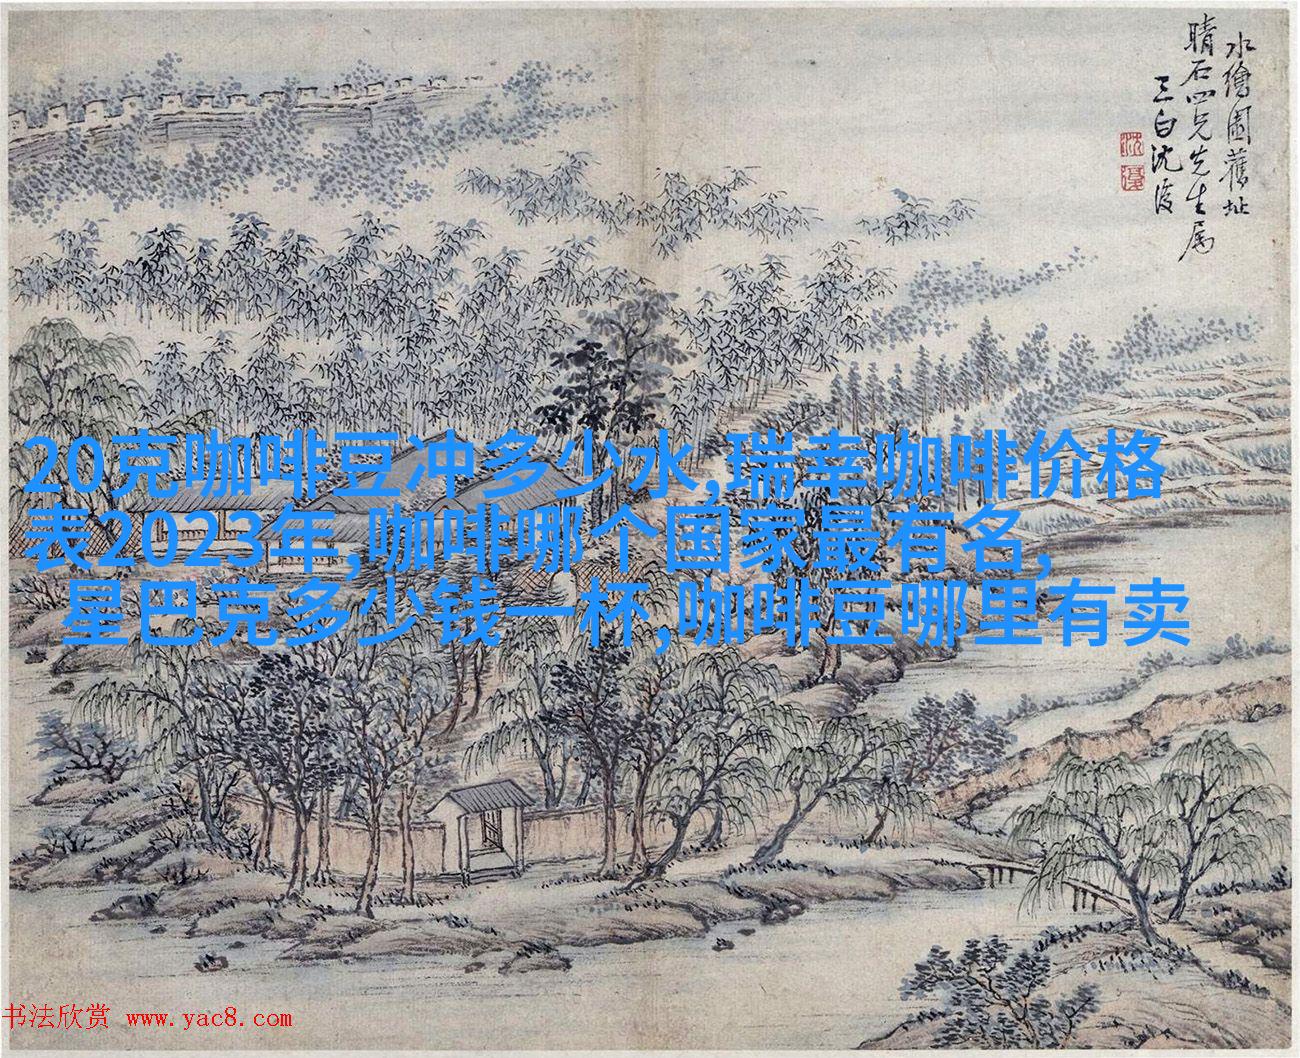 水繪園舊址
晴石四兄先生属
三白沈復
沈
復
20克咖啡豆冲多少水,瑞幸咖啡价格
表2023年,咖啡哪个国家最有名,
星巴克多少钱一杯,咖啡豆哪里有卖
书法欣赏 www.yac8.com